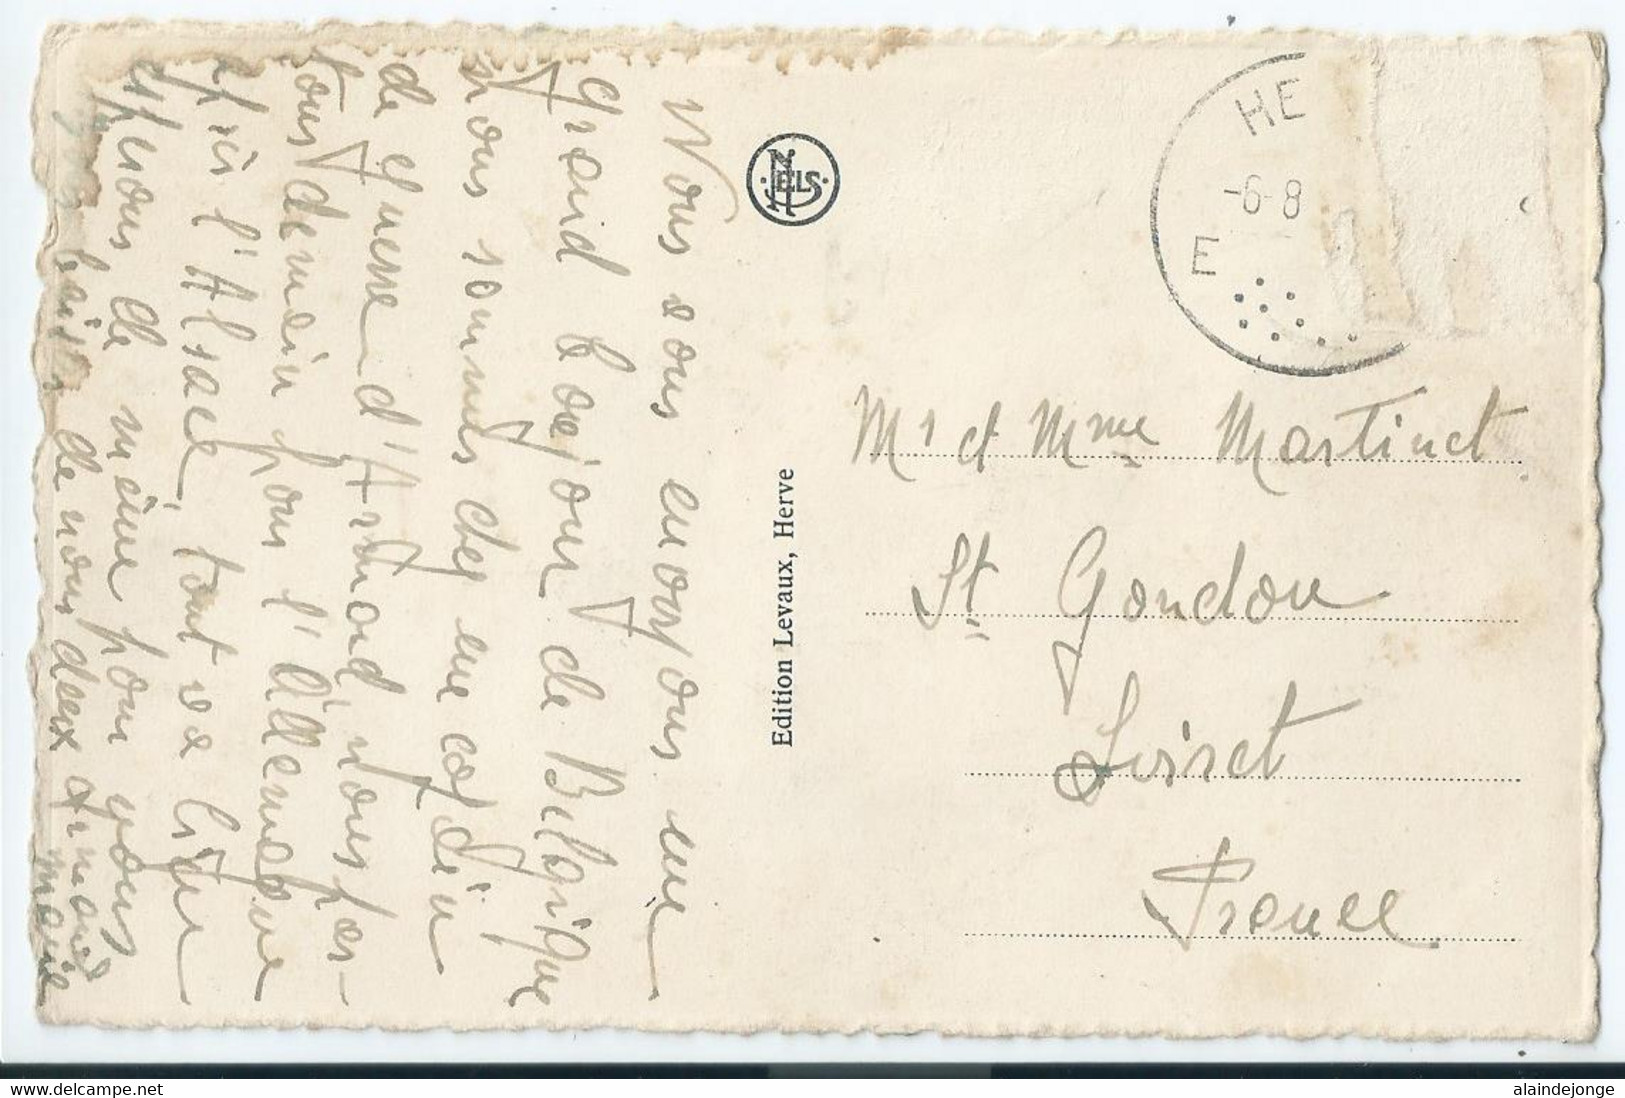 Nous vous envoyons une
grand bonjour de Belgique
nous sommes chez un copain
de guerre d'Armand, nous par-
tons demain pour l'Allemagne
puis l'Alsace, tout va bien
espérons de même pour vous
Bons baisers de nous deux Armand
Marie
NELS
Edition Levaux, Herve
HE
-6-8
E
Mr et Mme Martinet
St Gondon
Loiret
France
delcampe.net
alaindejonge